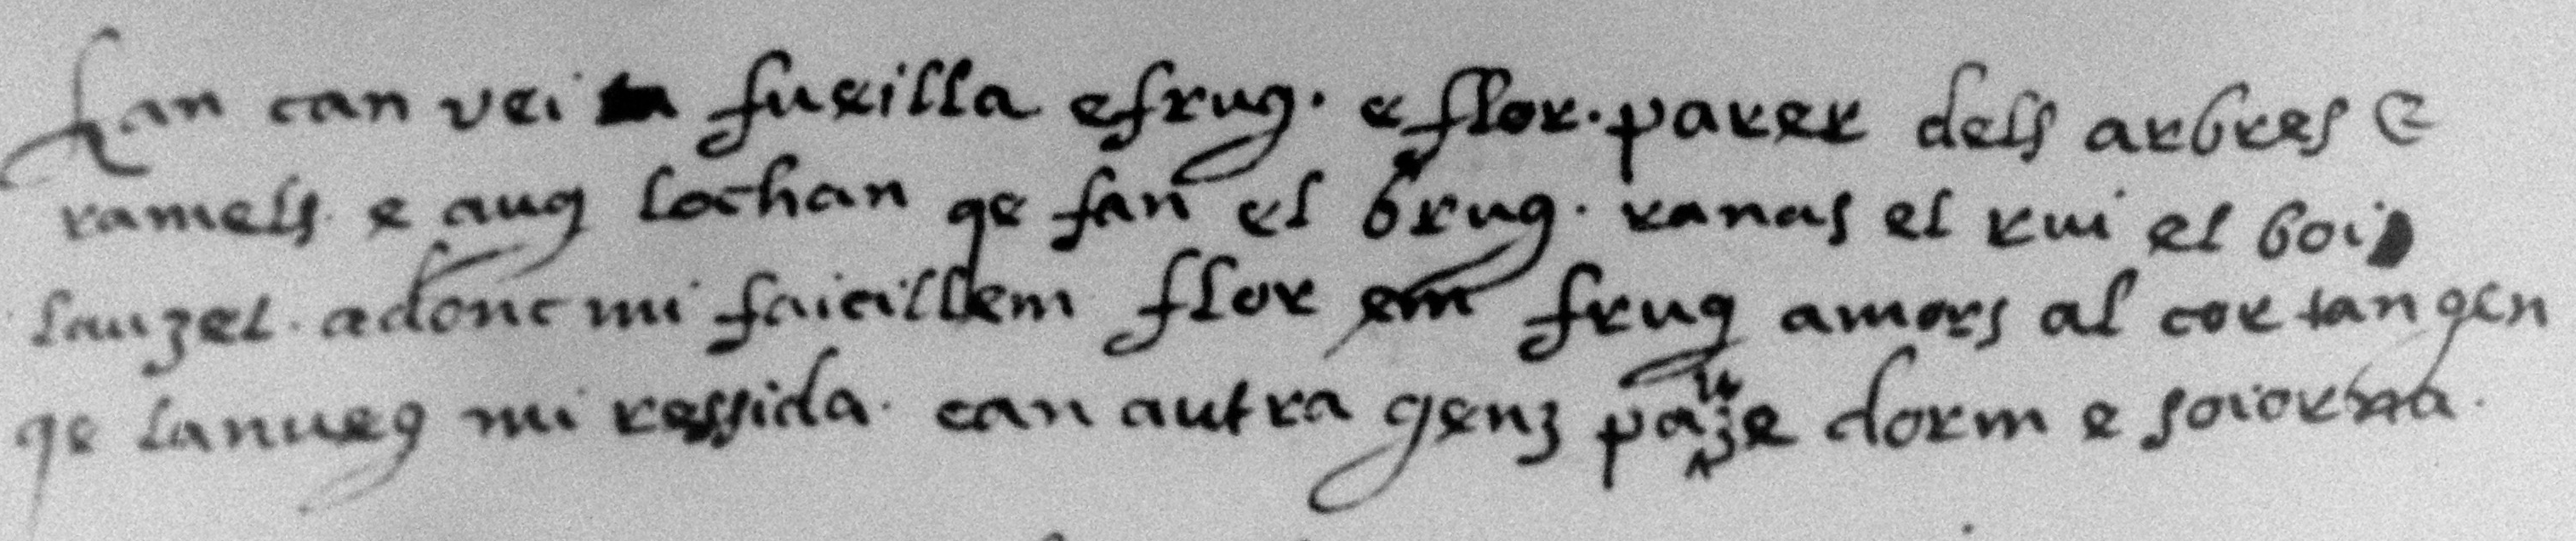 Lan can vei fueilla efrug. e flor. parer dels arbres e
ramels. e aug lochan qe fan el brug. ranas el rui el bois
lauzel. adonc mi faieillem flor em frug amors al cor tan gen
qe lanueg mi ressida. can autra genz pauze dorm e soiorna.